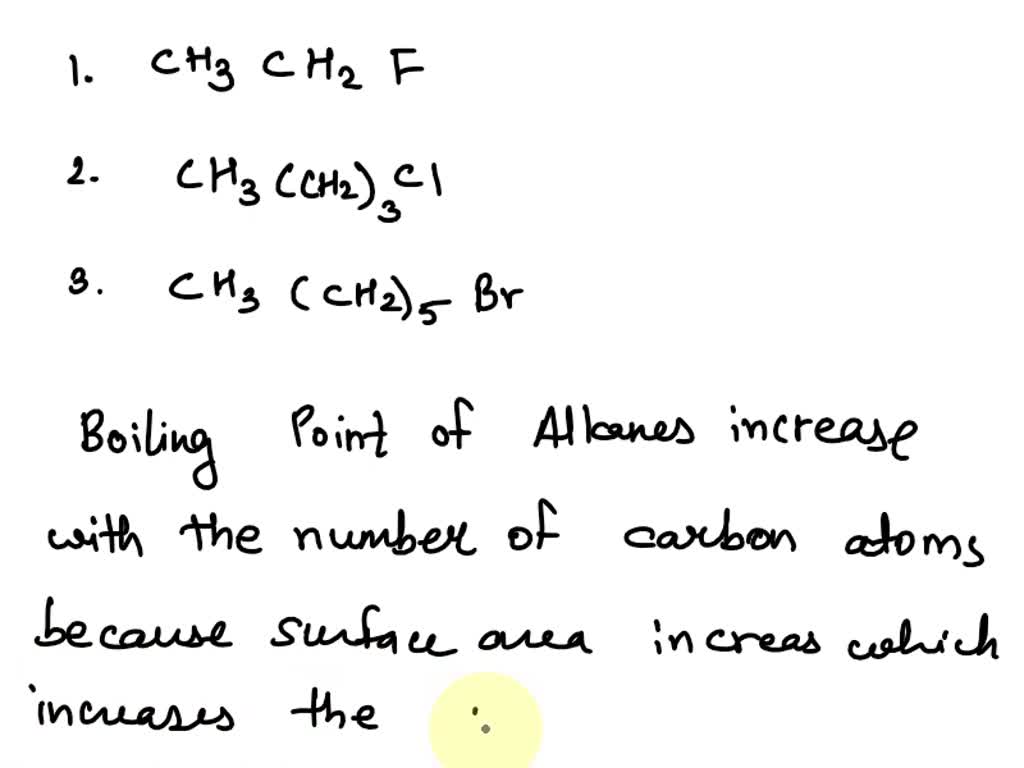 1. CH3 CH2 F
2. CH3 (CH2)3 Cl
3. CH3 (CH2)5 Br
Boiling Point of Alkanes increase
with the number of carbon atoms
because surface area increas which
increases the